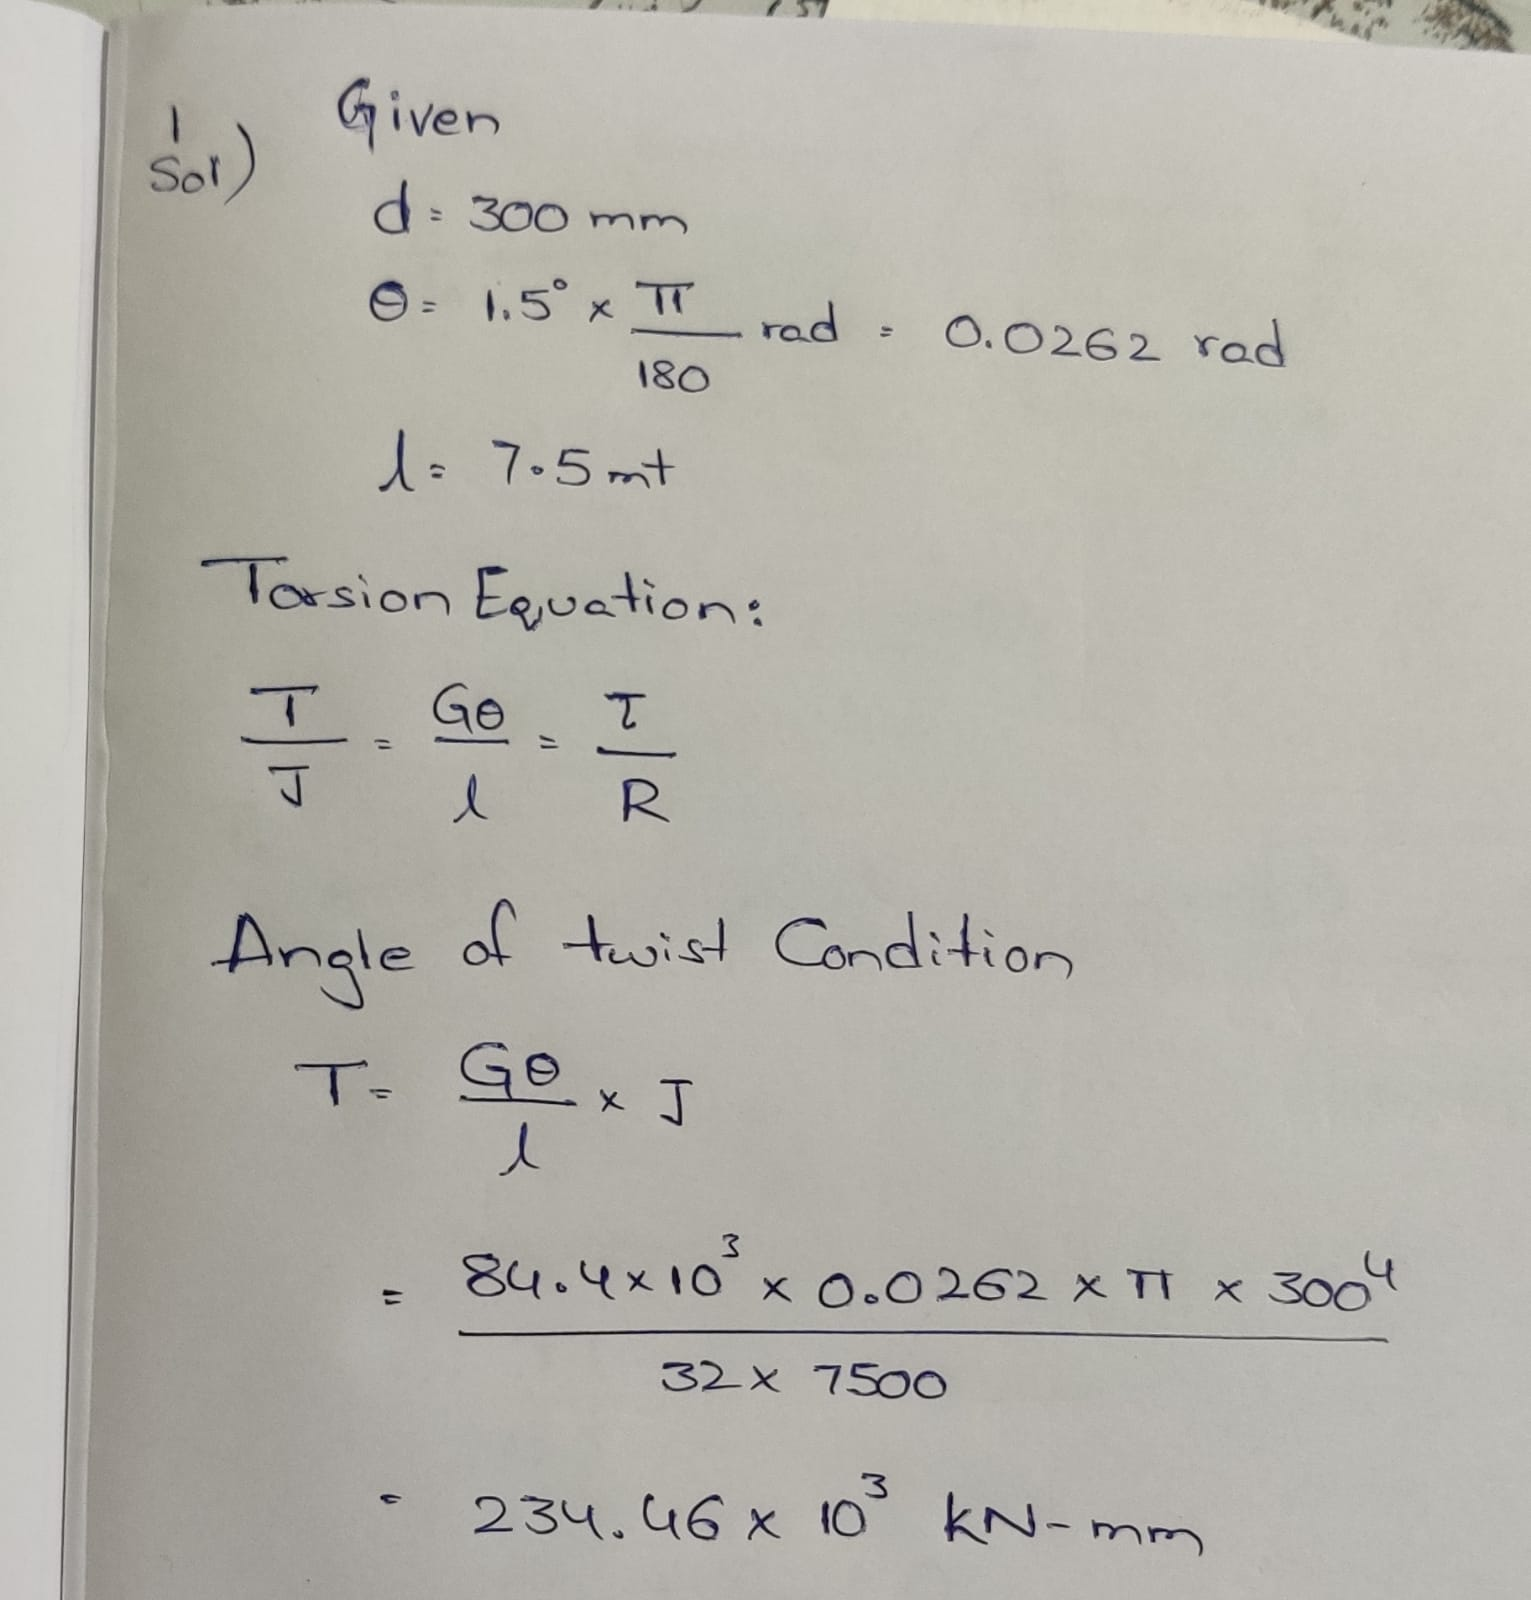 1 Sol) Given
d = 300 mm
θ = 1.5° × π/180 rad = 0.0262 rad
l = 7.5 mt
Torsion Equation:
T/J = Gθ/l = τ/R
Angle of twist Condition
T = Gθ/l × J
= 84.4 × 10³ × 0.0262 × π × 300⁴ / 32 × 7500
= 234.46 × 10³ kN-mm